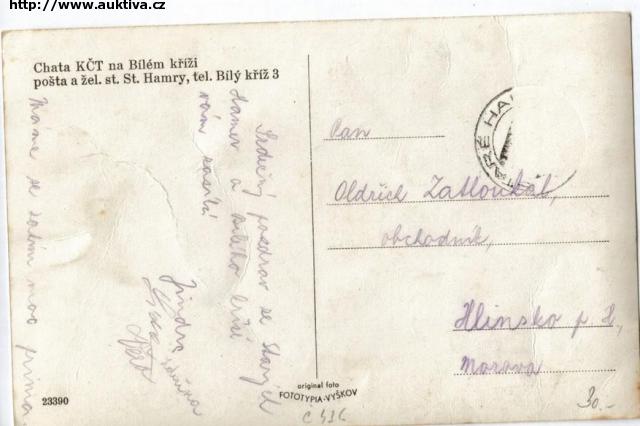 http://www.auktiva.cz
Chata KČT na Bílém kříži
pošta a žel. st. St. Hamry, tel. Bílý kříž 3
Srdečný pozdrav ze Starých
Hamer a Bílého kříže
vám zasílá
Jindra
Máme se zatím moc prima
23390
original foto
FOTOTYPIA-VYŠKOV
STARÉ HA
Pan
Oldřich Zatloukal,
obchodník,
Hlinsko p. H.
Morava
30.-